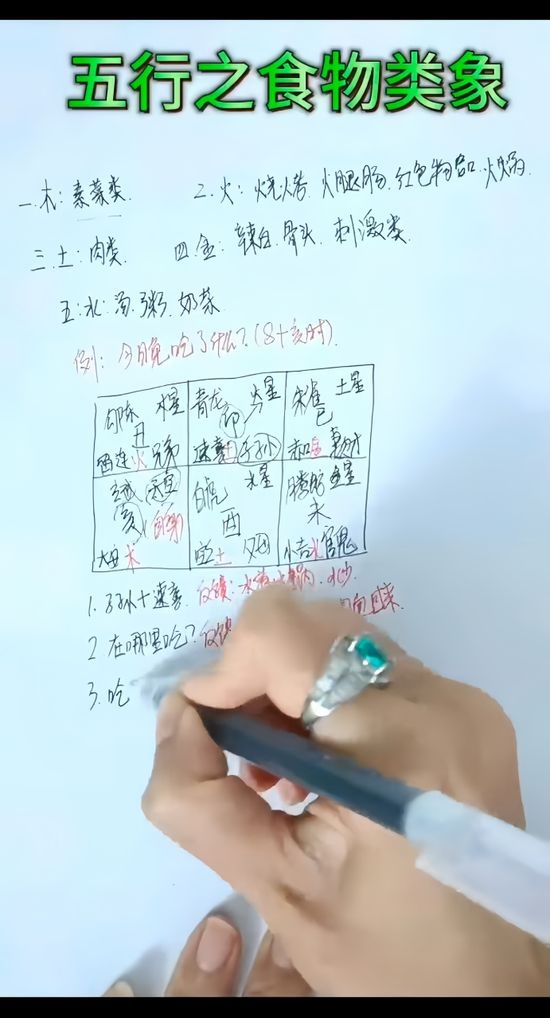 五行之食物类象
一.木:素菜类. 2.火:烧烤.火腿肠.红色物品.火锅.
三.土:肉类. 四.金:辣白.骨头.刺激类.
五:水:汤.粥.奶茶.
例:今晚吃了什么?(8+亥时).
勾陈 木星 青龙 火星 朱雀 土星
丑 卯 巳
留连火兄弟 速喜土子孙 赤口金妻财
玄武 天王 白虎 水星 腾蛇 金星
亥 自身 酉 未
大安木 空亡土 父母 小吉水官鬼
1.子孙+速喜. 反馈:
2.在哪里吃?反馈 回来.
3.吃